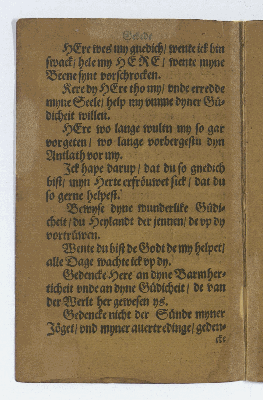 Gebede
HEre wes my gnedich/ wente ick bin
swack/ hele my HERE/ wente myne
Beene synt vorschrocken.
Kere dy HEre tho my/ vnde erredde
myne Seele/ help my vmme dyner Gü-
dicheit willen.
HEre wo lange wultu my so gar
vorgeten/ wo lange vorbergestu dyn
Antlath vor my.
Ick hape darup/ dat du so gnedich
bist/ myn Herte erfröuwet sick/ dat du
so gerne helpest.
Bewyse dyne wunderlike Güdi-
cheit/ du Heylandt der jennen/ de vp dy
vortrüwen.
Wente du bist de Godt de my helpet/
alle Dage wachte ick vp dy.
Gedencke Here an dyne Barmher-
ticheit vnde an dyne Güdicheit/ de van
der Werlt her gewesen ys.
Gedencke nicht der Sünde myner
Jöget/ vnd myner auertredinge/ geden-
cke